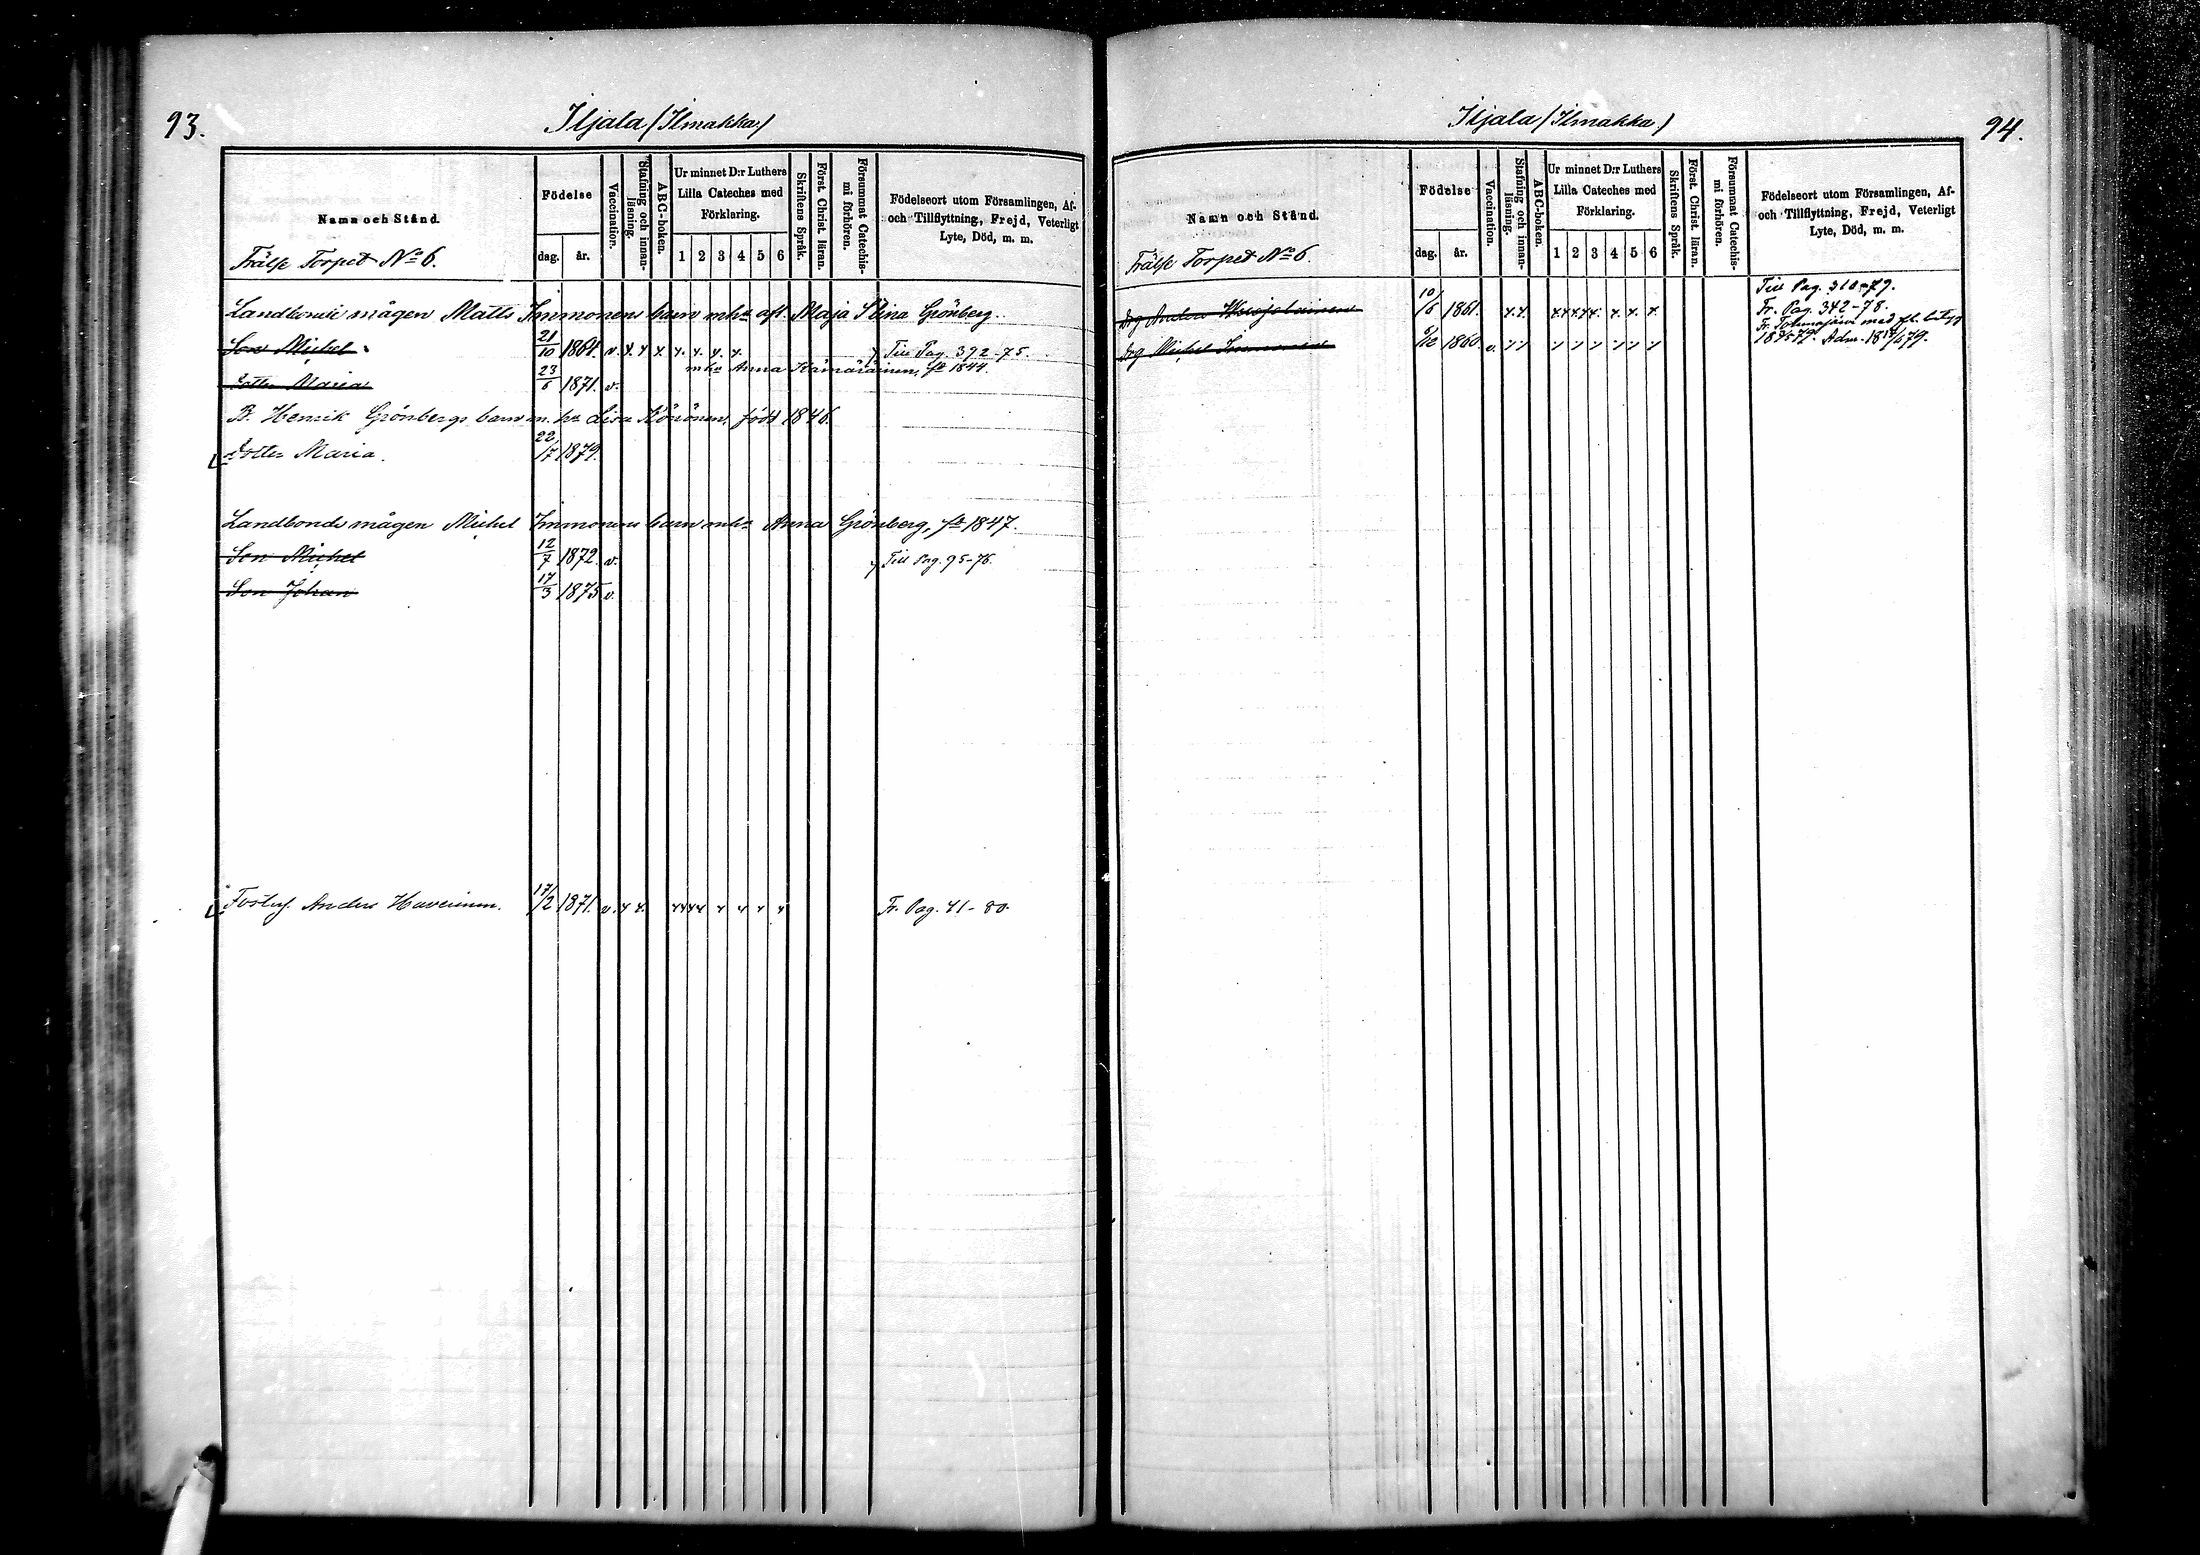 93.
Iljala (Ilmakka)
Namn och Stånd.
Frälse Torpet No 6.
Födelse
dag. år.
Vaccination.
Stafning och innanläsning.
ABC-boken.
Ur minnet D:r Luthers Lilla Cateches med Förklaring.
1 2 3 4 5 6
Skriftens Språk.
Först. Christ. läran.
Försummat Catechismi förhören.
Födelseort utom Församlingen, Af- och Tillflyttning, Frejd, Veterligt Lyte, Död, m. m.
Landbonde mågen Matts Immonens barn m hu aft. Maja Stina Grönberg.
Son Michel 21/10 1864. v. x x x x. x. x. x. Till Pag. 392-75.
m hu Anna Kämäräinen, fd 1844.
Dotter Maria 23/6 1871. v.
B. Henrik Grönbergs barn m. hu Lisa Könönen, född 1846.
Dotter Maria. 22/7 1879.
Landbonde mågen Michel Immonens barn m hu Anna Grönberg, fd 1847.
Son Michel 12/7 1872. v. Till Pag. 95-76.
Son Johan 17/3 1875 v.
Fosters. Anders Haverinen. 17/2 1871. v. x x. xxxx x x x x Fr. Pag. 41-80.
94.
Iljala (Ilmakka)
Namn och Stånd.
Frälse Torpet No 6.
Födelse
dag. år.
Vaccination.
Stafning och innanläsning.
ABC-boken.
Ur minnet D:r Luthers Lilla Cateches med Förklaring.
1 2 3 4 5 6
Skriftens Språk.
Först. Christ. läran.
Försummat Catechismi förhören.
Födelseort utom Församlingen, Af- och Tillflyttning, Frejd, Veterligt Lyte, Död, m. m.
Till Pag. 310-79.
Drg Anders 10/6 1861. x. x. xxxx. x. x. x. Fr. Pag. 342-78.
Fr. Tohmajärvi med
Drg Michel Immonen 1860. v. Adm. 79.